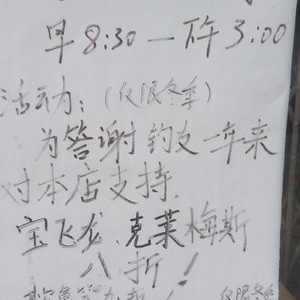 早8:30—下午3:00
活动:(仅限冬季)
为答谢钓友一年来
对本店支持,
宝飞龙、克莱梅斯
八折!
仅限冬